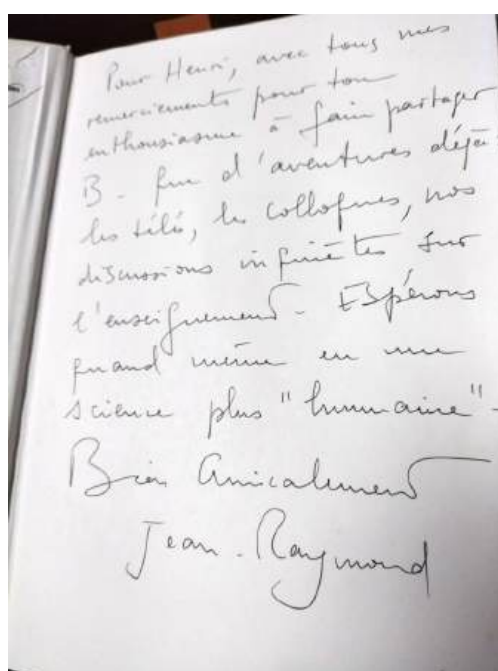 Pour Henri, avec tous mes
remerciements pour ton
enthousiasme à faire partager
B. Que d'aventures déjà:
les télé, les colloques, nos
discussions inquiètes sur
l'enseignement - Espérons
quand même en une
science plus "humaine" -
Bien Amicalement
Jean-Raymond